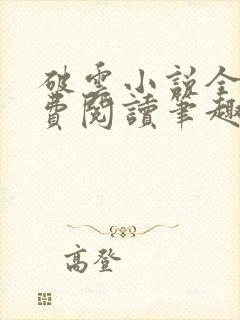 破雲小説全
費閱讀筆趣
高登